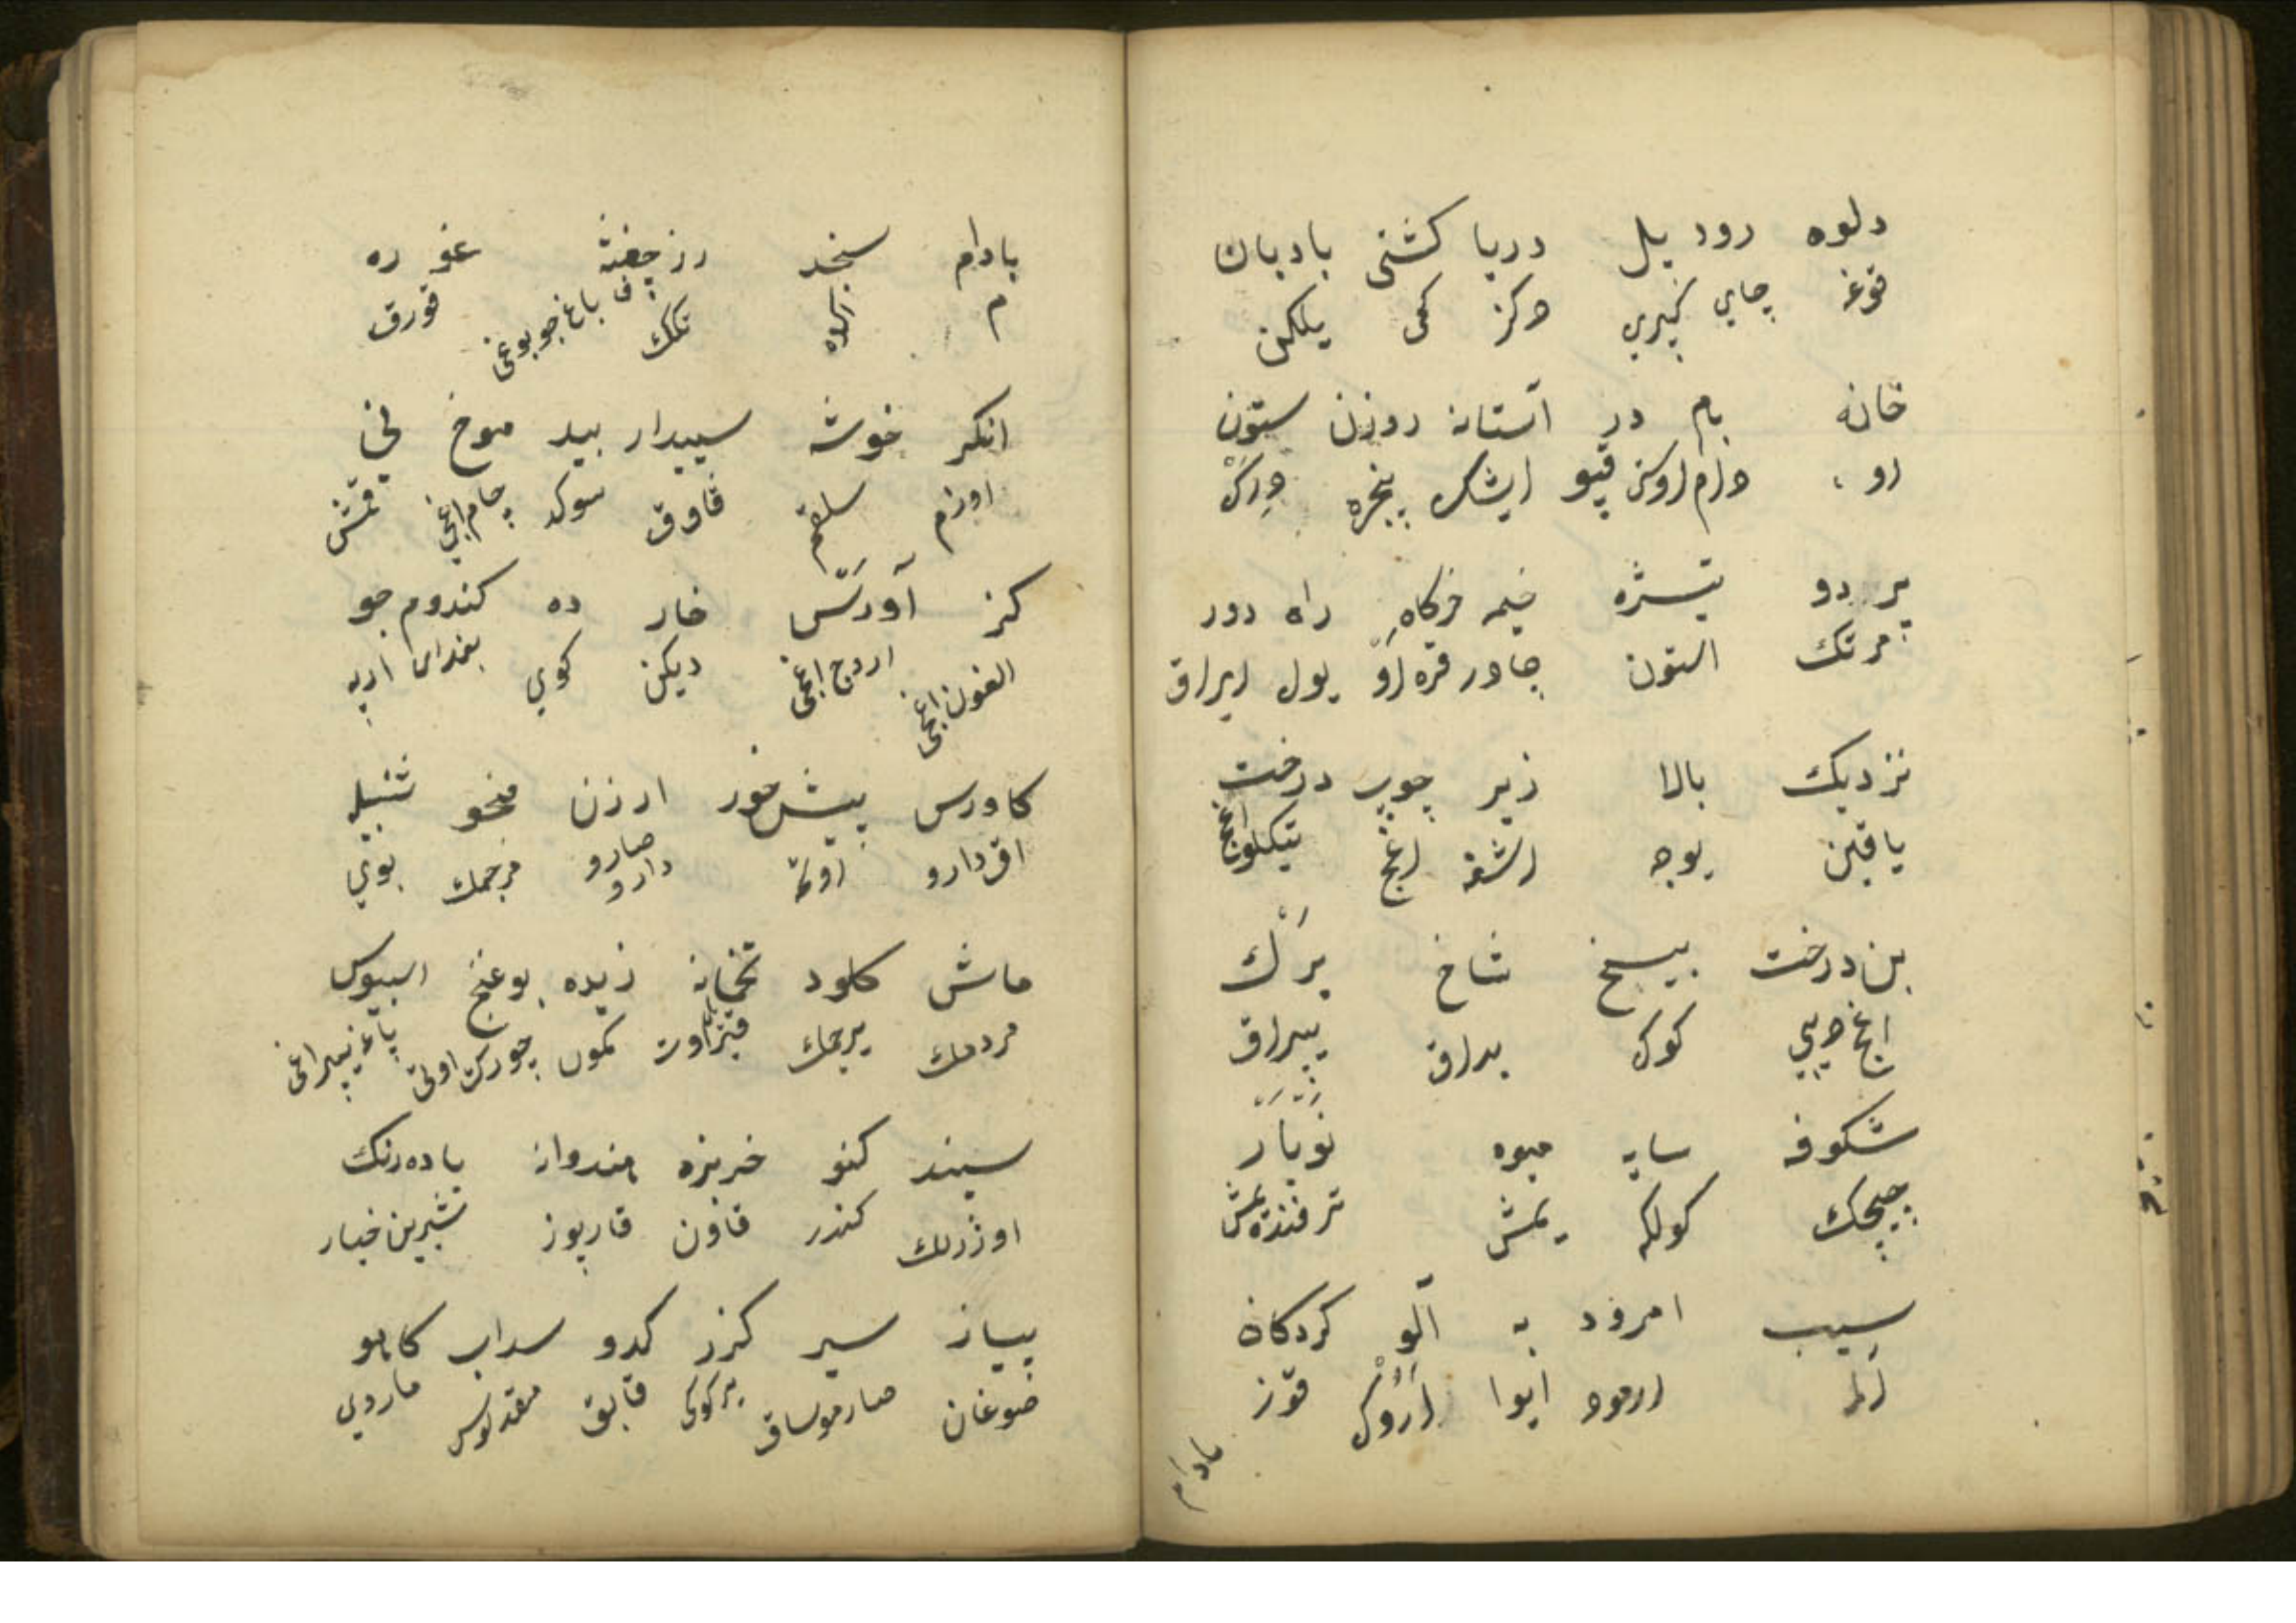 دلوه رود پل دریا کشتی بادبان
قوغه چای کپری دکز کمی یلکن
خانه بام در آستانه روزن ستون
او طام اوستی قپو ایشک پنجره دیرک
پردو خیمه خرگاه راه دور
مرتک استون چادر قره او یول ایراق
نزدیک بالا زیر چوب درخت
یاقین یوجه اشغه اغج تیکلو اغج
بن درخت بیخ شاخ برک
اغج دیبی کوک بداق یپراق
شکوفه سایه میوه نوبار
چیچک کولکه یمش ترفنده یمش
سیب امرود به آلو کردکان
الما ارمود ایوا اروک قوز
بادام
بادام سنجد رز چفته غوره
م ایکده تکک باغ چوبوغی قورق
انکر خوشه سپیدار بید موخ نی
اوزم سلقم قاوق سوکد چام اغجی قمش
کز آورس خار ده کندوم جو
الغون اغجی اردج اغجی دیکن کوی بغدای ارپه
کاورس پیش خور ارزن منجو شنبله
اق دارو اوتمه صارو دارو مرجمک بوی
ماش کلود تخمخانه زیده بوغنج اسپیوس
مردمک برجمک کمون چورک اوتی پاغه یپراغی
سپند کنو خربزه هندوانه بادرنک
اوزرلك کندر قاون قارپوز شیرین خیار
پیاز سیر کزر کدو سداب کاهو
ضوغان صارموساق یرکوکی قابق مقدنوس مارول